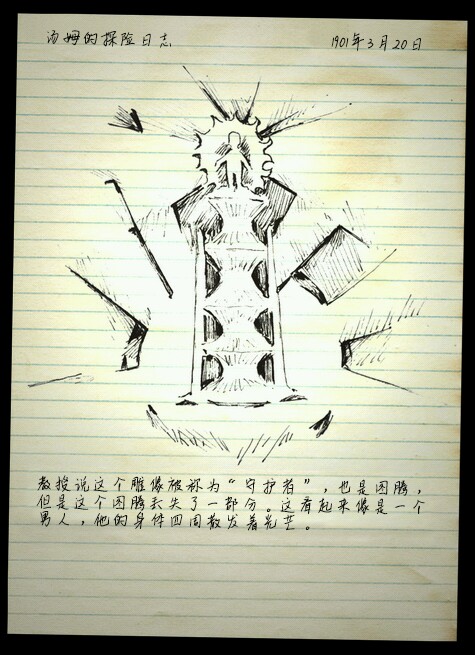 汤姆的探险日志
1901年3月20日
教授说这个雕像被称为“守护者”，也是图腾，
但是这个图腾丢失了一部分。这看起来像是一个
男人，他的身体四周散发着光芒。